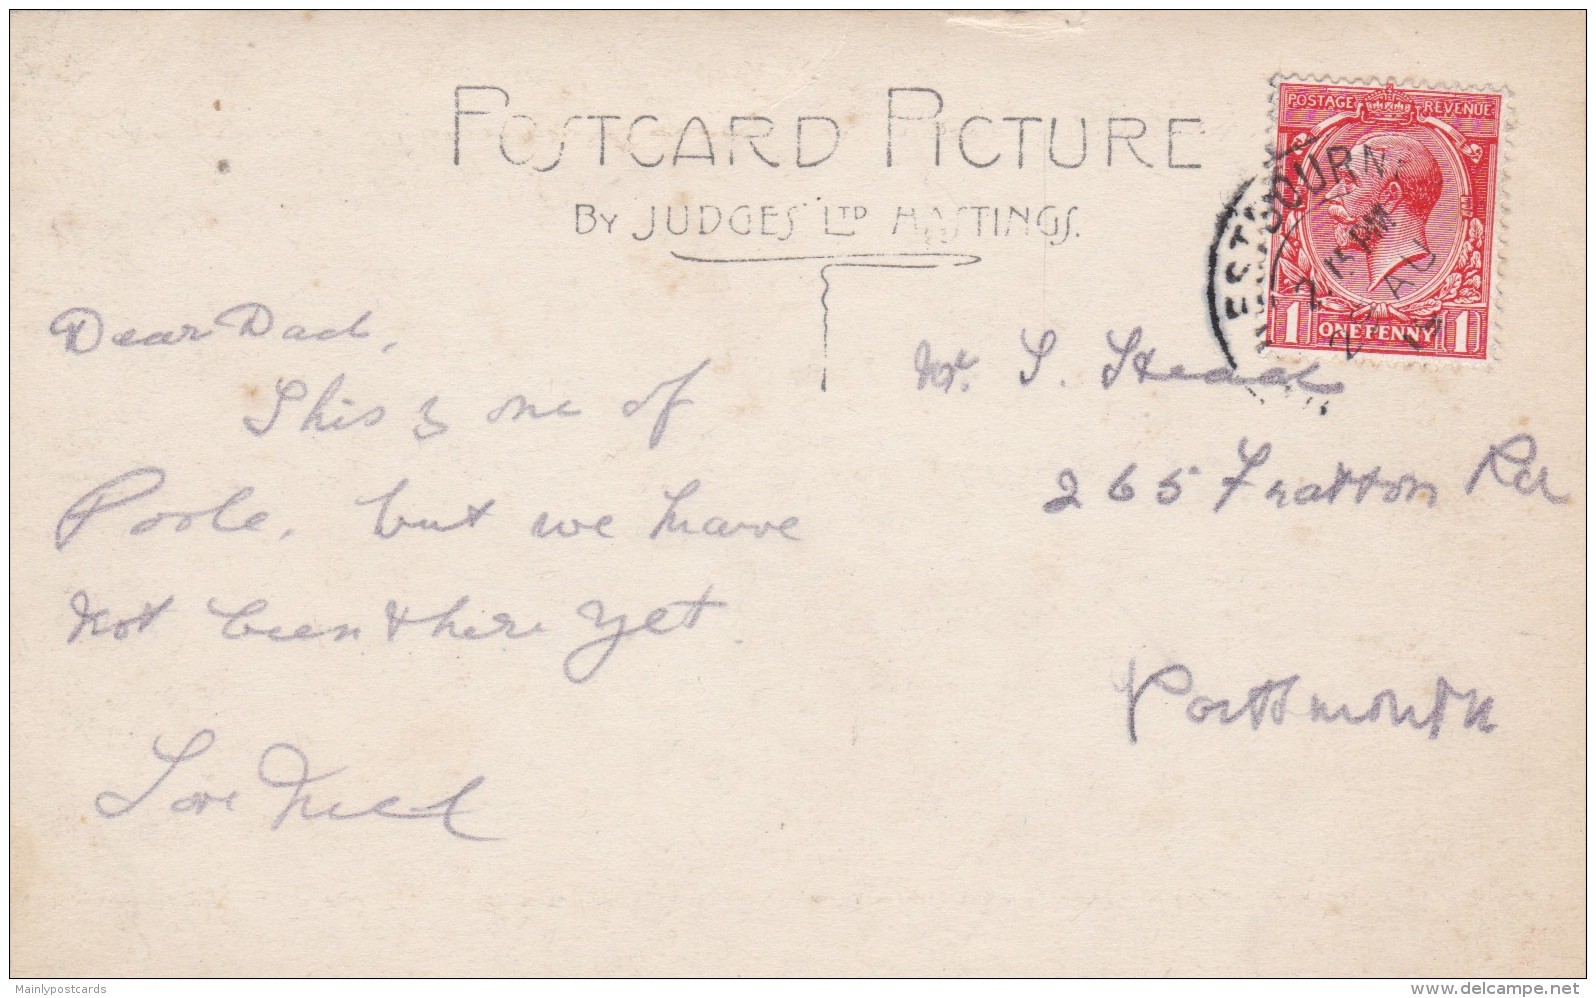 POSTCARD PICTURE
BY JUDGES LTD HASTINGS.
POSTAGE REVENUE
ESTBOURN
2.15 AM
AU
1 ONE PENNY 1
Dear Dad,
This is one of
Poole, but we have
not been there yet.
Love
Mr. S. Stead
265 Fratton Rd
Portsmouth
Mainlypostcards
www.delcampe.net